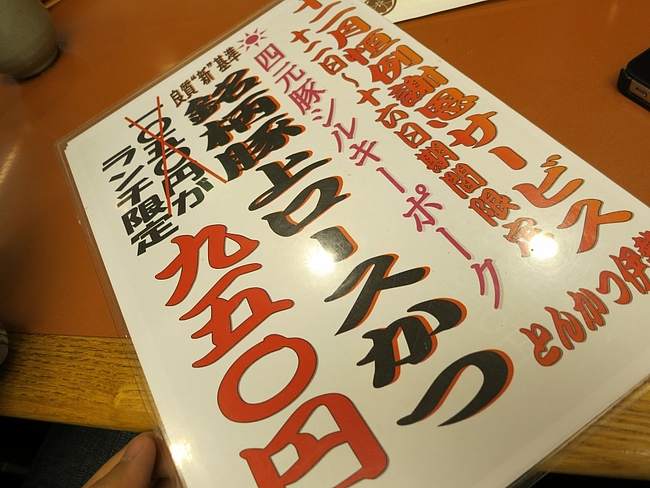 十二月恒例謝恩サービス
十二日～十六日期間限定
四元豚シルキーポーク
良質"新"基準
銘柄豚上ロースかつ
一〇五〇円が
ランチ限定
九五〇円
とんかつ伊勢